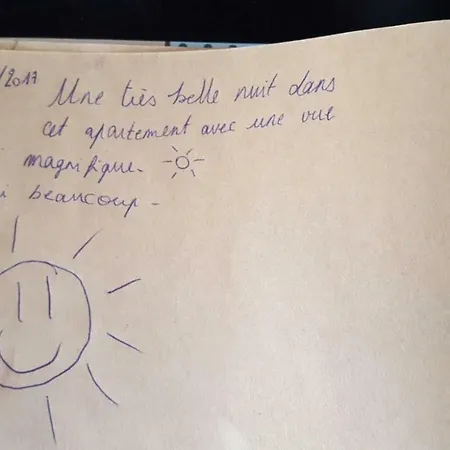 /2017 Une très belle nuit dans
cet apartement avec une vue
magnifique.
i beaucoup -